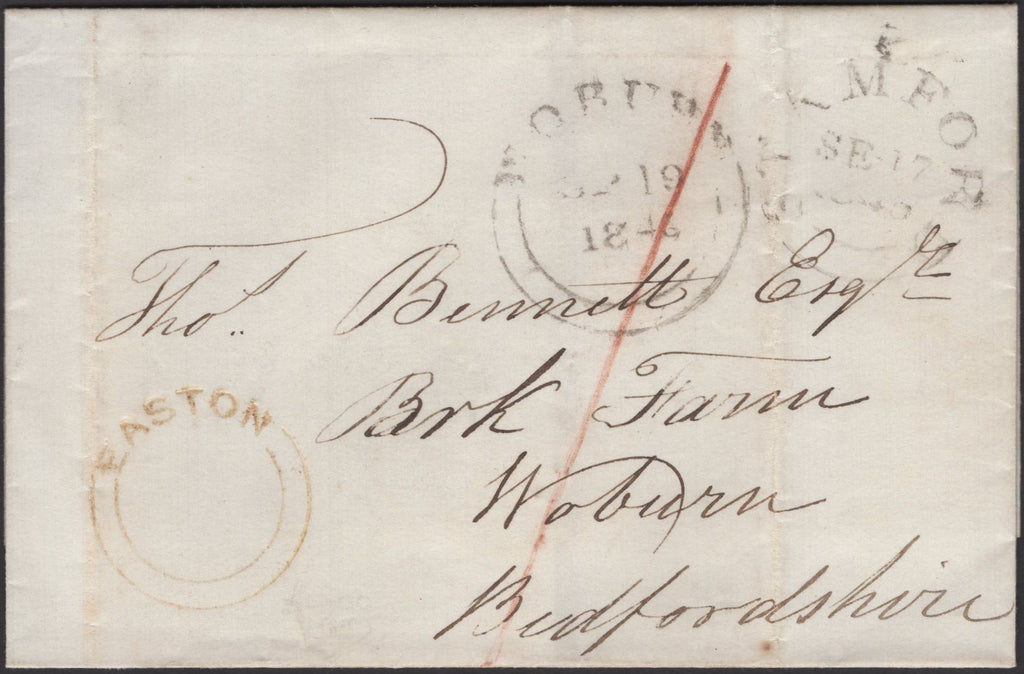 WOBURN
SP 19
184
MFOR
SE 17
Thos. Bennett Esqre
Park Farm
Woburn
Bedfordshire
EASTON